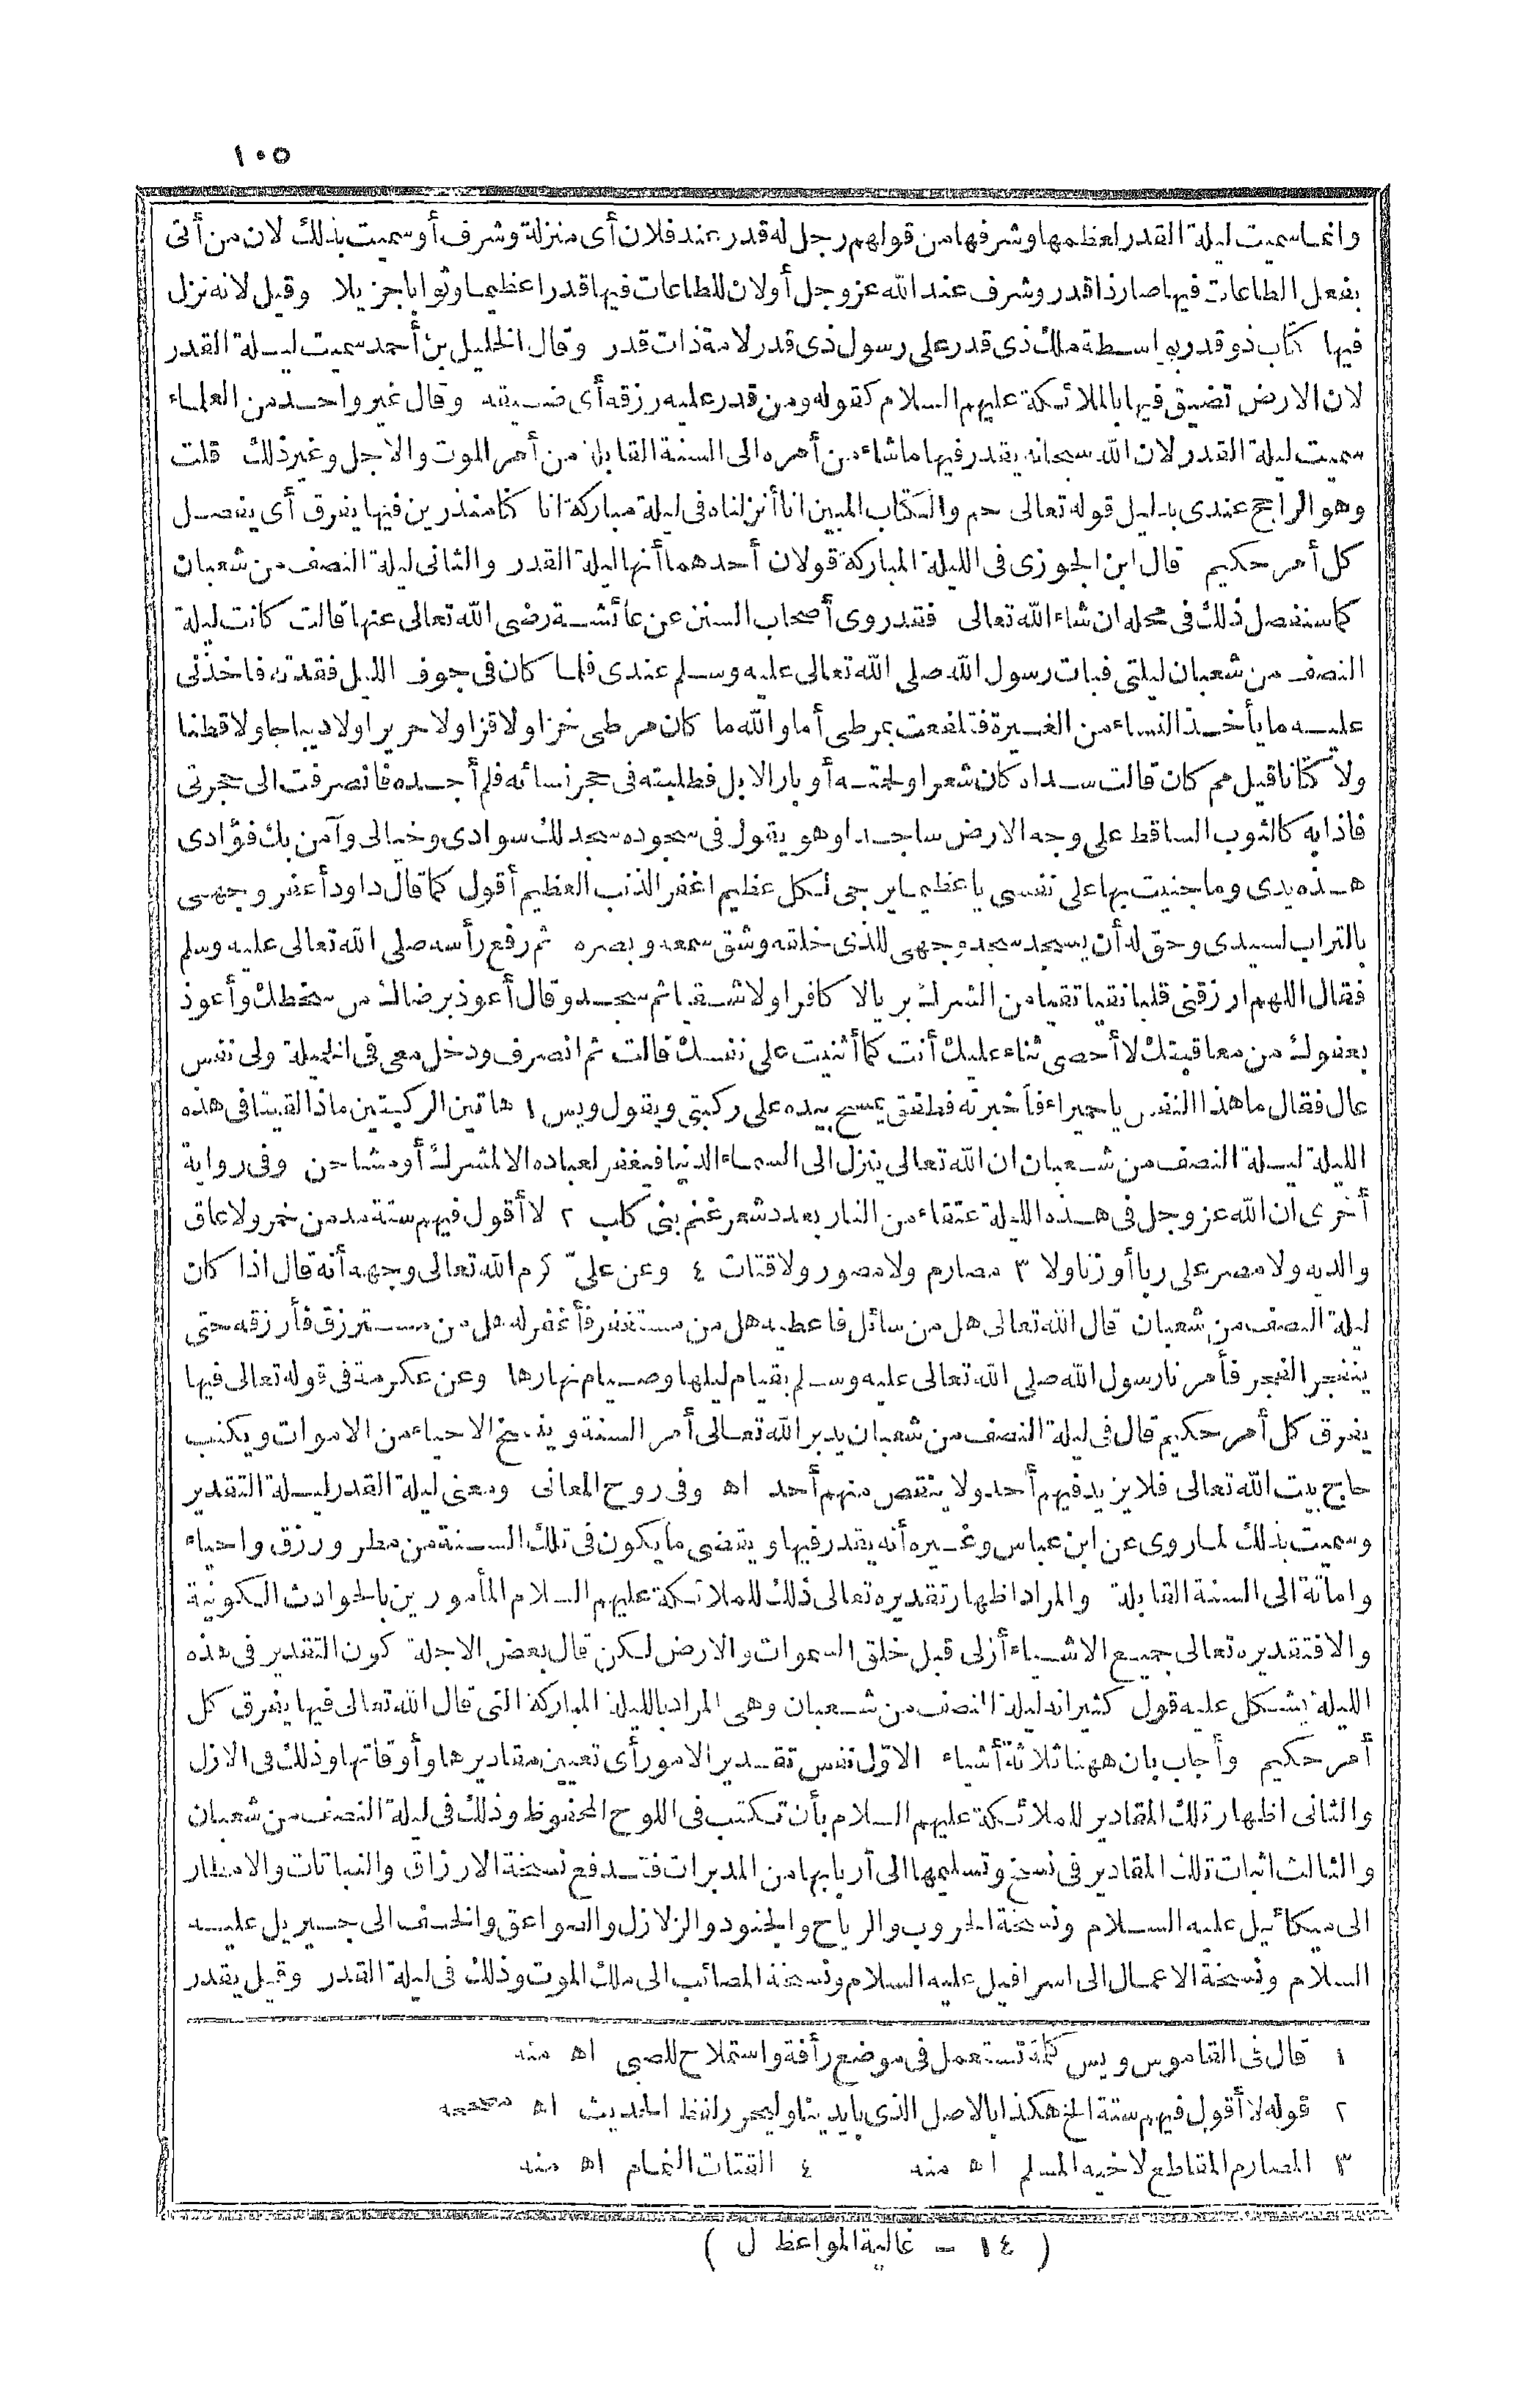 ١٠٥
وانما سميت ليلة القدر لعظمها وشرفها من قولهم رجل له قدر عند فلان أى منزلة وشرف أو سميت بذلك لان من أتى
بفعل الطاعات فيها صار ذا قدر وشرف عند الله عز وجل أو لان للطاعات فيها قدرا عظيما وثوابا جزيلا وقيل لانه نزل
فيها كتاب ذو قدر بواسطة ملك ذى قدر على رسول ذى قدر لامة ذات قدر وقال الخليل بن أحمد سميت ليلة القدر
لان الارض تضيق فيها بالملائكة عليهم السلام كقوله ومن قدر عليه رزقه أى ضيقه وقال غير واحد من العلماء
سميت ليلة القدر لان الله سبحانه يقدر فيها ما شاء من أمره الى السنة القابلة من أمر الموت والاجل وغير ذلك قلت
وهو الراجح عندى بدليل قوله تعالى حم والكتاب المبين انا أنزلناه فى ليلة مباركة انا كنا منذرين فيها يفرق أى يفصل
كل أمر حكيم قال ابن الجوزى فى الليلة المباركة قولان أحدهما أنها ليلة القدر والثانى ليلة النصف من شعبان
كما سنفصل ذلك فى محله ان شاء الله تعالى فقد روى أصحاب السنن عن عائشة رضى الله تعالى عنها قالت كانت ليلة
النصف من شعبان ليلتى فبات رسول الله صلى الله تعالى عليه وسلم عندى فلما كان فى جوف الليل فقدته فاخذنى
عليه ما يأخذ النساء من الغيرة فتلفعت بمرطى أما والله ما كان مرطى خزا ولا قزا ولا حريرا ولا ديباجا ولا قطنا
ولا كتانا قيل مم كان قالت سداه كان شعرا ولحمته أوبار الابل فطلبته فى حجر نسائه فلم أجده فانصرفت الى حجرتى
فاذا به كالثوب الساقط على وجه الارض ساجدا وهو يقول فى سجوده سجد لك سوادى وخيالى وآمن بك فؤادى
هذه يدى وما جنيت بها على نفسى يا عظيما يرجى لكل عظيم اغفر الذنب العظيم أقول كما قال داود أعفر وجهى
بالتراب لسيدى وحق له أن يسجد سجد وجهى للذى خلقه وشق سمعه وبصره ثم رفع رأسه صلى الله تعالى عليه وسلم
فقال اللهم ارزقنى قلبا نقيا تقيا من الشرك بريا لا كافرا ولا شقيا ثم سجد وقال أعوذ برضاك من سخطك وأعوذ
بعفوك من معاقبتك لا أحصى ثناء عليك أنت كما أثنيت على نفسك قالت ثم انصرف ودخل معى فى الخميلة ولى نفس
عال فقال ما هذا النفس يا حميراء فأخبرته فطفق يمسح بيده على ركبتى ويقول ويس ١ هاتين الركبتين ماذا لقيتا فى هذه
الليلة ليلة النصف من شعبان ان الله تعالى ينزل الى السماء الدنيا فيغفر لعباده الا لمشرك أو مشاحن وفى رواية
أخرى ان الله عز وجل فى هذه الليلة عتقاء من النار بعدد شعر غنم بنى كلب ٢ لا أقول فيهم ستة مدمن خمر ولا عاق
والديه ولا مصر على ربا أو زنا ولا ٣ مصارم ولا مصور ولا قتات ٤ وعن علىّ كرم الله تعالى وجهه أنه قال اذا كان
ليلة النصف من شعبان قال الله تعالى هل من سائل فاعطيه هل من مستغفر فأغفر له هل من مسترزق فأرزقه حتى
ينفجر الفجر فأمرنا رسول الله صلى الله تعالى عليه وسلم بقيام ليلها وصيام نهارها وعن عكرمة فى قوله تعالى فيها
يفرق كل أمر حكيم قال فى ليلة النصف من شعبان يدبر الله تعالى أمر السنة وينسخ الاحياء من الاموات ويكتب
حاج بيت الله تعالى فلا يزيد فيهم أحد ولا ينقص منهم أحد اه وفى روح المعانى ومعنى ليلة القدر ليلة التقدير
وسميت بذلك لما روى عن ابن عباس وغيره أنه يقدر فيها ويقضى ما يكون فى تلك السنة من مطر ورزق واحياء
واماتة الى السنة القابلة والمراد اظهار تقديره تعالى ذلك للملائكة عليهم السلام المأمورين بالحوادث الكونية
والا فتقديره تعالى جميع الاشياء أزلى قبل خلق السموات والارض لكن قال بعض الاجلة كون التقدير فى هذه
الليلة يشكل عليه قول كثير انه ليلة النصف من شعبان وهى المراد بالليلة المباركة التى قال الله تعالى فيها يفرق كل
أمر حكيم وأجاب بان ههنا ثلاثة أشياء الاوّل نفس تقدير الامور أى تعيين مقاديرها وأوقاتها وذلك فى الازل
والثانى اظهار تلك المقادير للملائكة عليهم السلام بأن تكتب فى اللوح المحفوظ وذلك فى ليلة النصف من شعبان
والثالث اثبات تلك المقادير فى نسخ وتسليمها الى أربابها من المدبرات فتدفع نسخة الارزاق والنباتات والامطار
الى ميكائيل عليه السلام ونسخة الحروب والرياح والجنود والزلازل والصواعق والخسف الى جبريل عليه
السلام ونسخة الاعمال الى اسرافيل عليه السلام ونسخة المصائب الى ملك الموت وذلك فى ليلة القدر وقيل يقدر
١ قال فى القاموس ويس كلمة تستعمل فى موضع رأفة واستملاح للصبى اه منه
٢ قوله لا أقول فيهم ستة الخ هكذا بالاصل الذى بايدينا وليحرر لفظ الحديث اه مصححه
٣ المصارم المقاطع لاخيه المسلم اه منه ٤ القتات النمام اه منه
( ١٤ - غالية المواعظ ل )